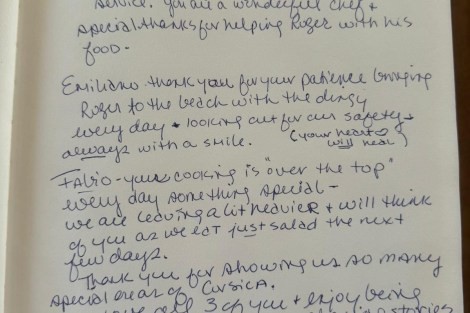 service. You are a wonderful chef +
special thanks for helping Roger with his
food.
Emiliano thank you for your patience bringing
Roger to the beach with the dingy
every day + looking out for our safety +
always with a smile. (your heart
will heal)
Fabio - your cooking is "over the top"
every day something special -
we are leaving a bit heavier + will think
of you as we eat just salad the next
few days.
Thank you for showing us so many
special areas of Corsica.
all 3 of you + enjoy being
stories